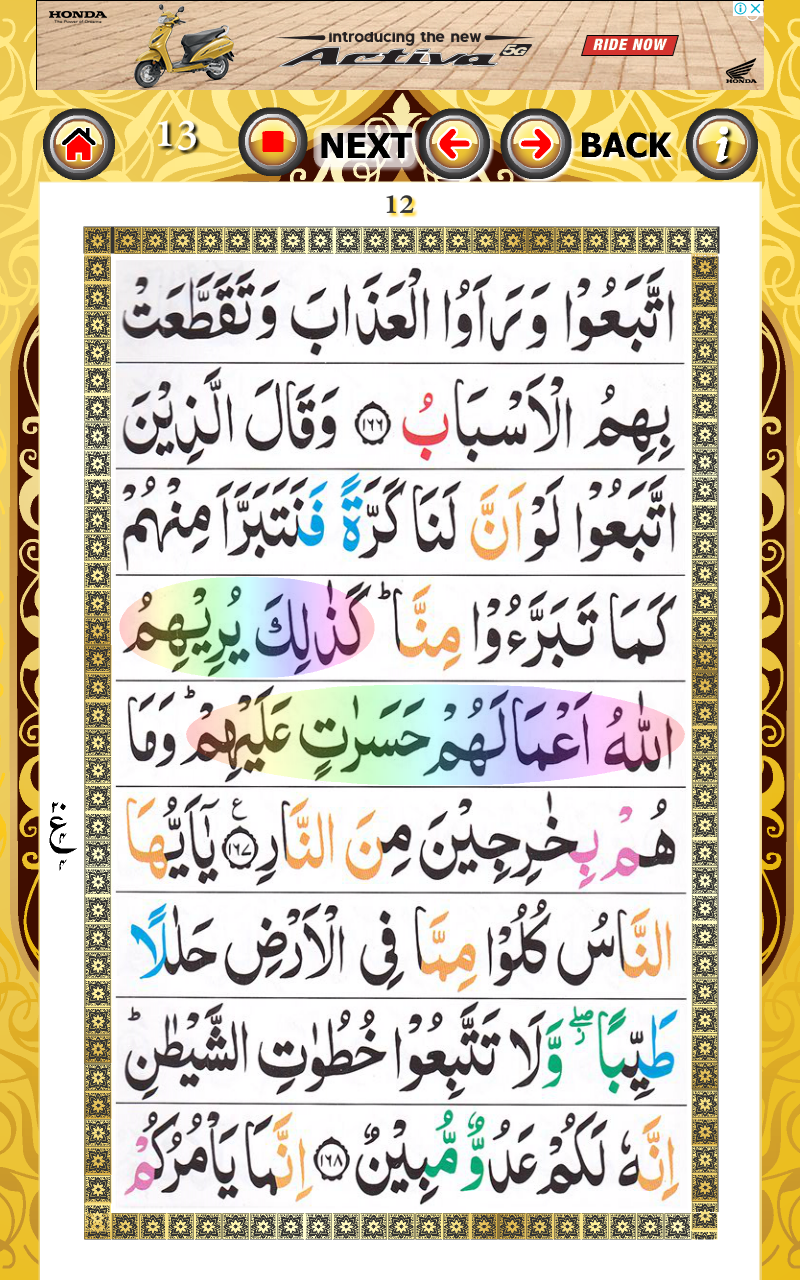 HONDA
The Power of Dreams
introducing the new
Activa 5G
RIDE NOW
HONDA
13
NEXT
BACK
i
12
اتَّبَعُوْا وَرَاَوُا الْعَذَابَ وَتَقَطَّعَتْ
بِهِمُ الْاَسْبَابُ ۝۱۶۶ وَقَالَ الَّذِيْنَ
اتَّبَعُوْا لَوْ اَنَّ لَنَا كَرَّةً فَنَتَبَرَّاَ مِنْهُمْ
كَمَا تَبَرَّءُوْا مِنَّا ؕ كَذٰلِكَ يُرِيْهِمُ
اللّٰهُ اَعْمَالَهُمْ حَسَرٰتٍ عَلَيْهِمْ ؕ وَمَا
هُمْ بِخٰرِجِيْنَ مِنَ النَّارِ ۝۱۶۷ ع يٰٓاَيُّهَا
النَّاسُ كُلُوْا مِمَّا فِى الْاَرْضِ حَلٰلًا
طَيِّبًا ۖ وَّلَا تَتَّبِعُوْا خُطُوٰتِ الشَّيْطٰنِ ؕ
اِنَّهٗ لَكُمْ عَدُوٌّ مُّبِيْنٌ ۝۱۶۸ اِنَّمَا يَاْمُرُكُمْ